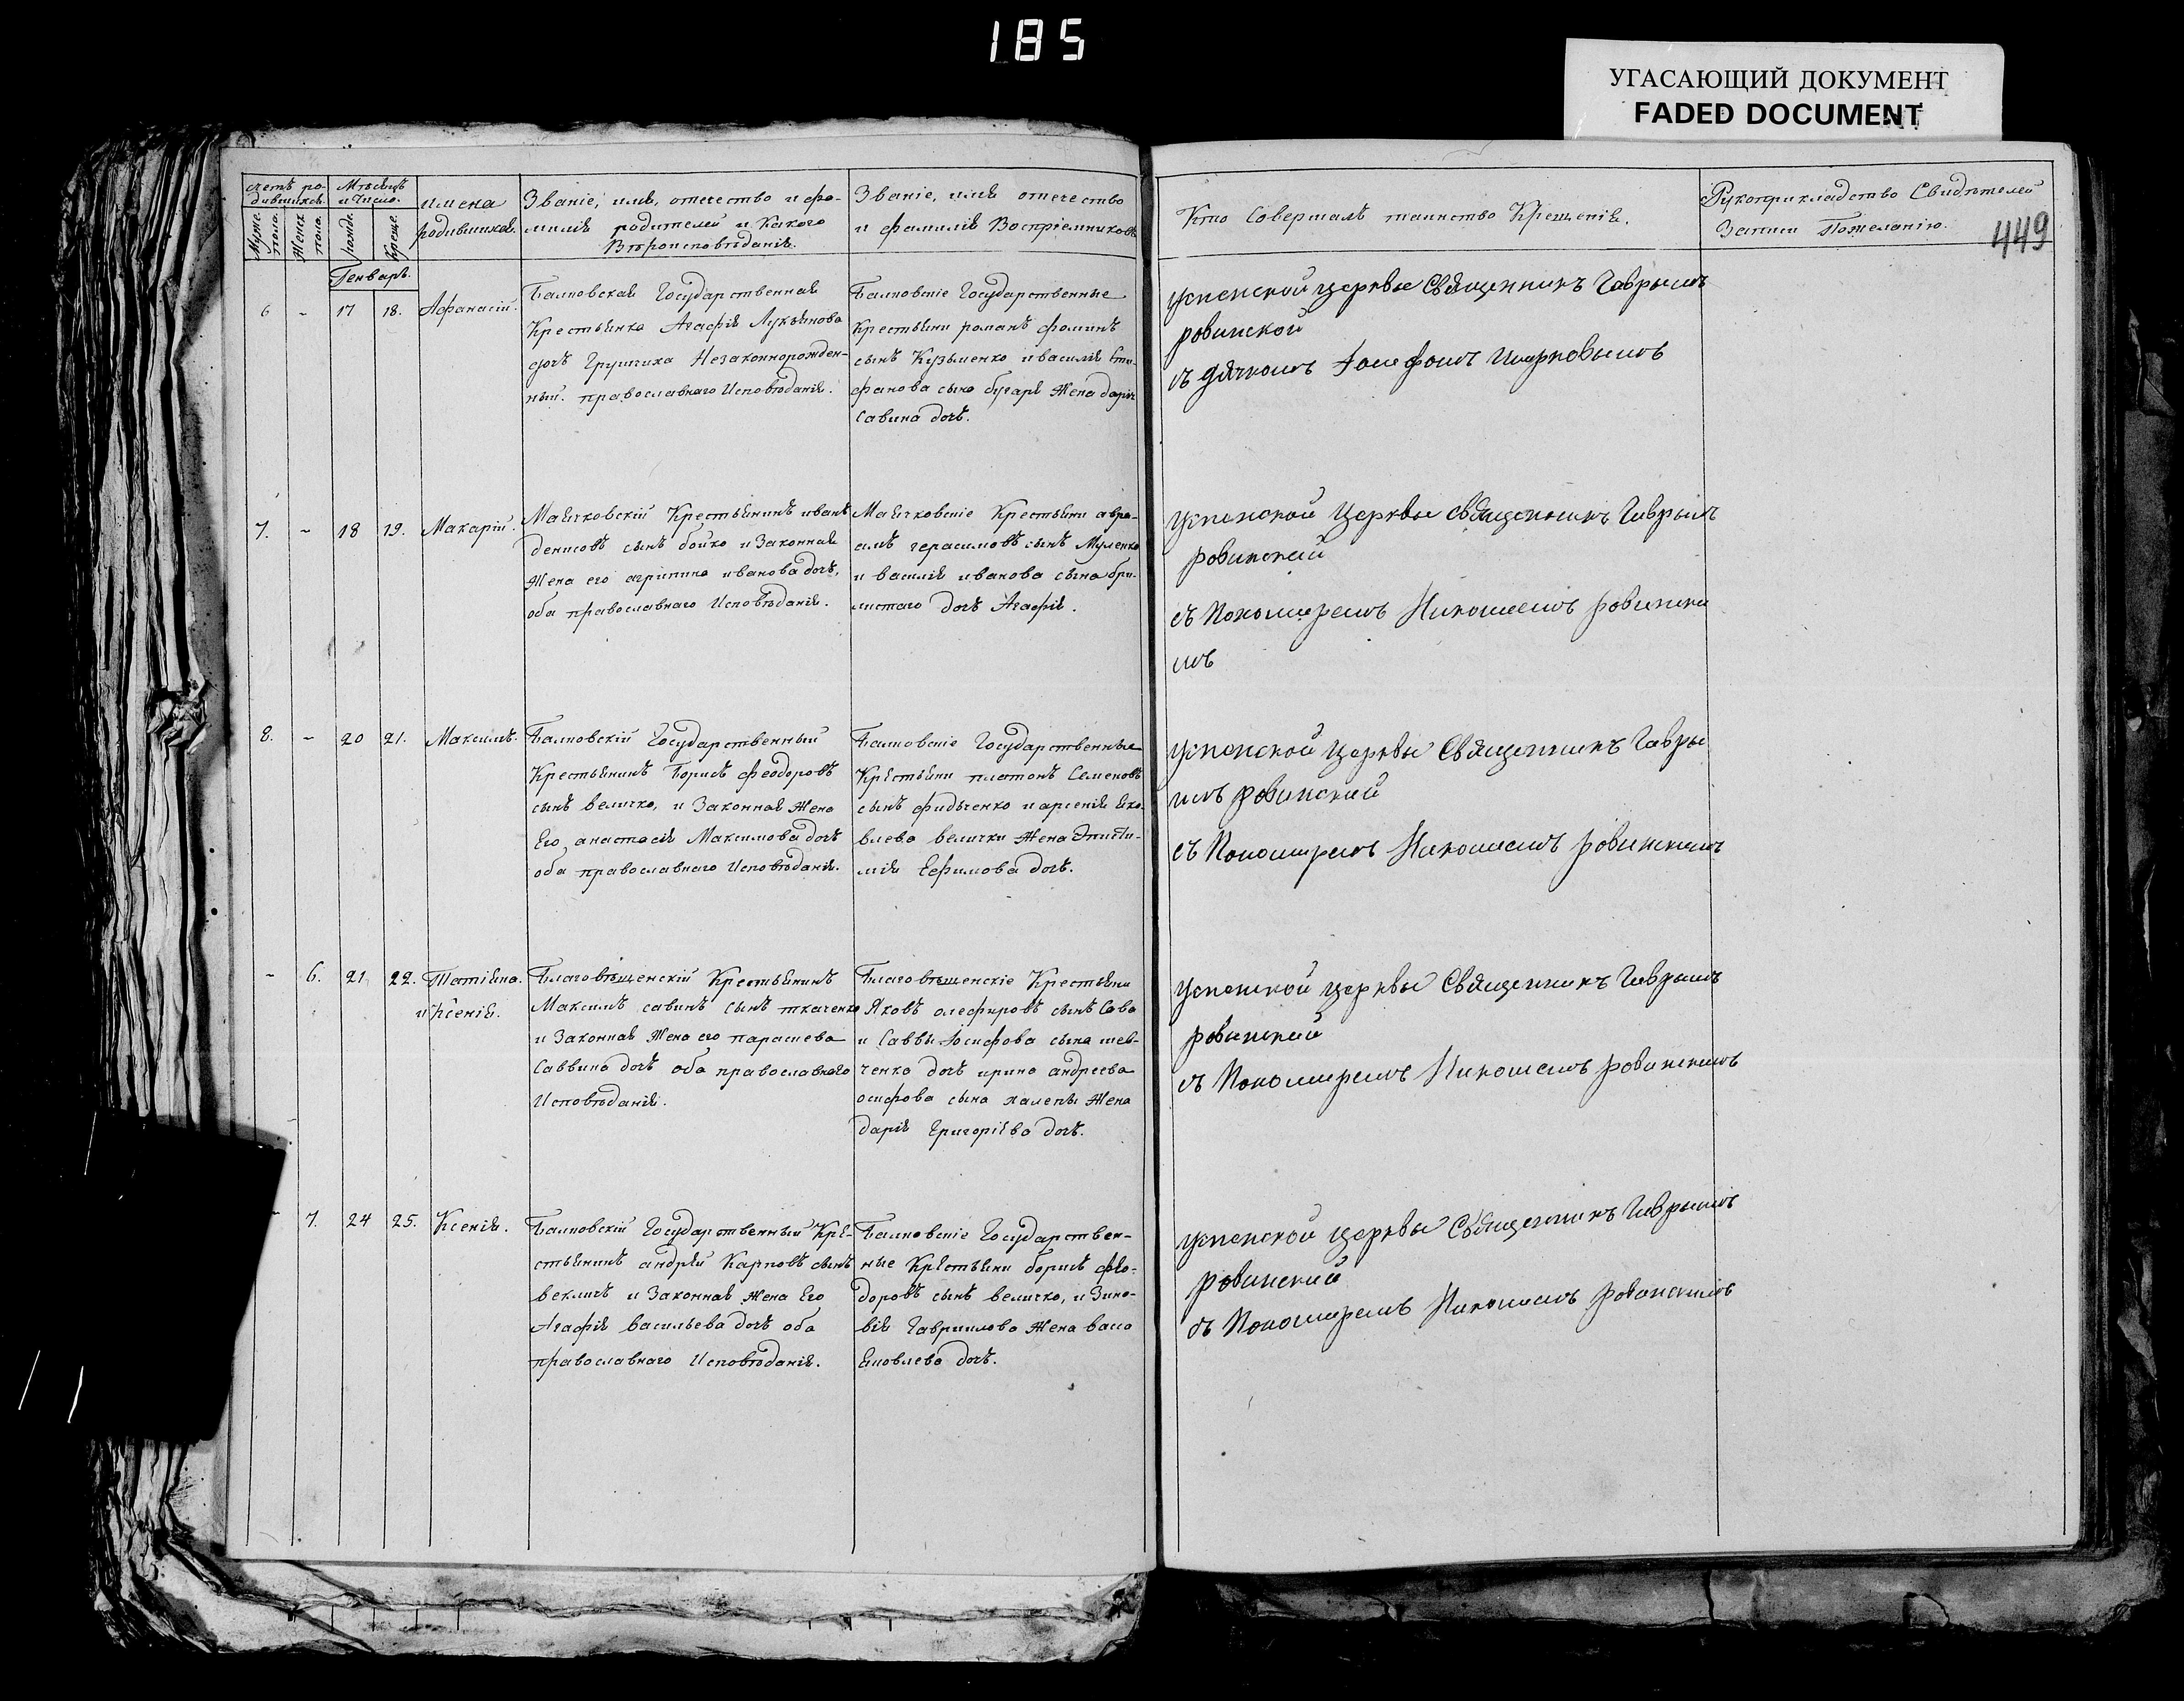 185
УГАСАЮЩИЙ ДОКУМЕНТ
FADED DOCUMENT
449
счетъ ро-
дившихся.
Мѣсяцъ
и Число.
Муже. пола.
Женск пола.
рожд.
Креще.
имена
родившихся.
Званіе, имя, отечество и фа-
милія родителей и Какого
Вѣроисповѣданія.
Званіе, имя отечество
и фамилія Воспріемниковъ
Кто Совершалъ таинство Крещенія.
Рукоприкладство Свидѣтелей
Записи Пожеланію.
Генварь.
6 - 17 18. Афанасій.
Балковская Государственная
Крестьянка Агафія Лукьянова
дочь Грушиха Незаконнорожден-
ный. православнаго Исповѣданія.
Балковскіе Государственные
Крестьяни романъ фоминъ
сынъ Кузьменко и василія Сти-
фанова сына бугаря Жена дарія
Савина дочь.
успенской церкви Священникъ Гаврыилъ
ровинской
съ дячкомъ Іосифомъ
7. - 18 19. Макарій.
Маячковскій Крестьянинъ иванъ
денисовъ сынъ бойко и Законная
Жена его агрипина иванова дочь,
оба православнаго Исповѣданія.
Маячковскіе Крестьяни авра-
амъ герасимовъ сынъ Муленко
и василія иванова сына бри-
листаго дочь Агафія.
успенской Церкви священникъ Гаврыилъ
ровинский
съ Пономаремъ Николаемъ ровински
мъ
8. - 20 21. Максимъ.
Балковскій Государственный
Крестьянинъ Борисъ феодоровъ
сынъ величко, и Законная Жена
Его анастасія Максимова дочь
оба православнаго Исповѣданія.
Балковскіе Государственные
Крестьяни платонъ Семеновъ
сынъ фидченко и арсенія Яко-
влева велички Жена Эписти-
мія Ефимова дочь.
успенской Церкви Священникъ Гавры
илъ ровинский
съ Пономаремъ Николаемъ ровинскимъ
- 6. 21. 22. Татіяна.
и Ксенія.
Благовѣщенскій Крестьянинъ
Максимъ савинъ сынъ ткаченко
и Законная Жена его парасцева
Саввина дочь оба православнаго
Исповѣданія.
Благовѣщенскіе Крестьяни
Яковъ олефировъ сынъ Сава
и Саввы Іосифова сына шев-
ченка дочь ирина андреева
осифова сына халепы Жена
дарія Григоріева дочь.
успенской церквы Священникъ Гаврыилъ
ровинский
съ Пономаремъ Николаемъ ровинскимъ
- 7. 24 25. Ксенія.
Балковскій Государственный Кре-
стьянинъ андрей Карповъ сынъ
векличъ и Законная Жена Его
Агафія васильева дочь оба
православнаго Исповѣданія.
Балковскіе Государствен-
ные Крестьяни борисъ фео-
доровъ сынъ величко, и Зино-
вія Гавриилова Жена васа
Яковлева дочь.
успенской Церквы Священникъ Гаврыилъ
ровинский
съ Пономаремъ Николаемъ ровинскимъ